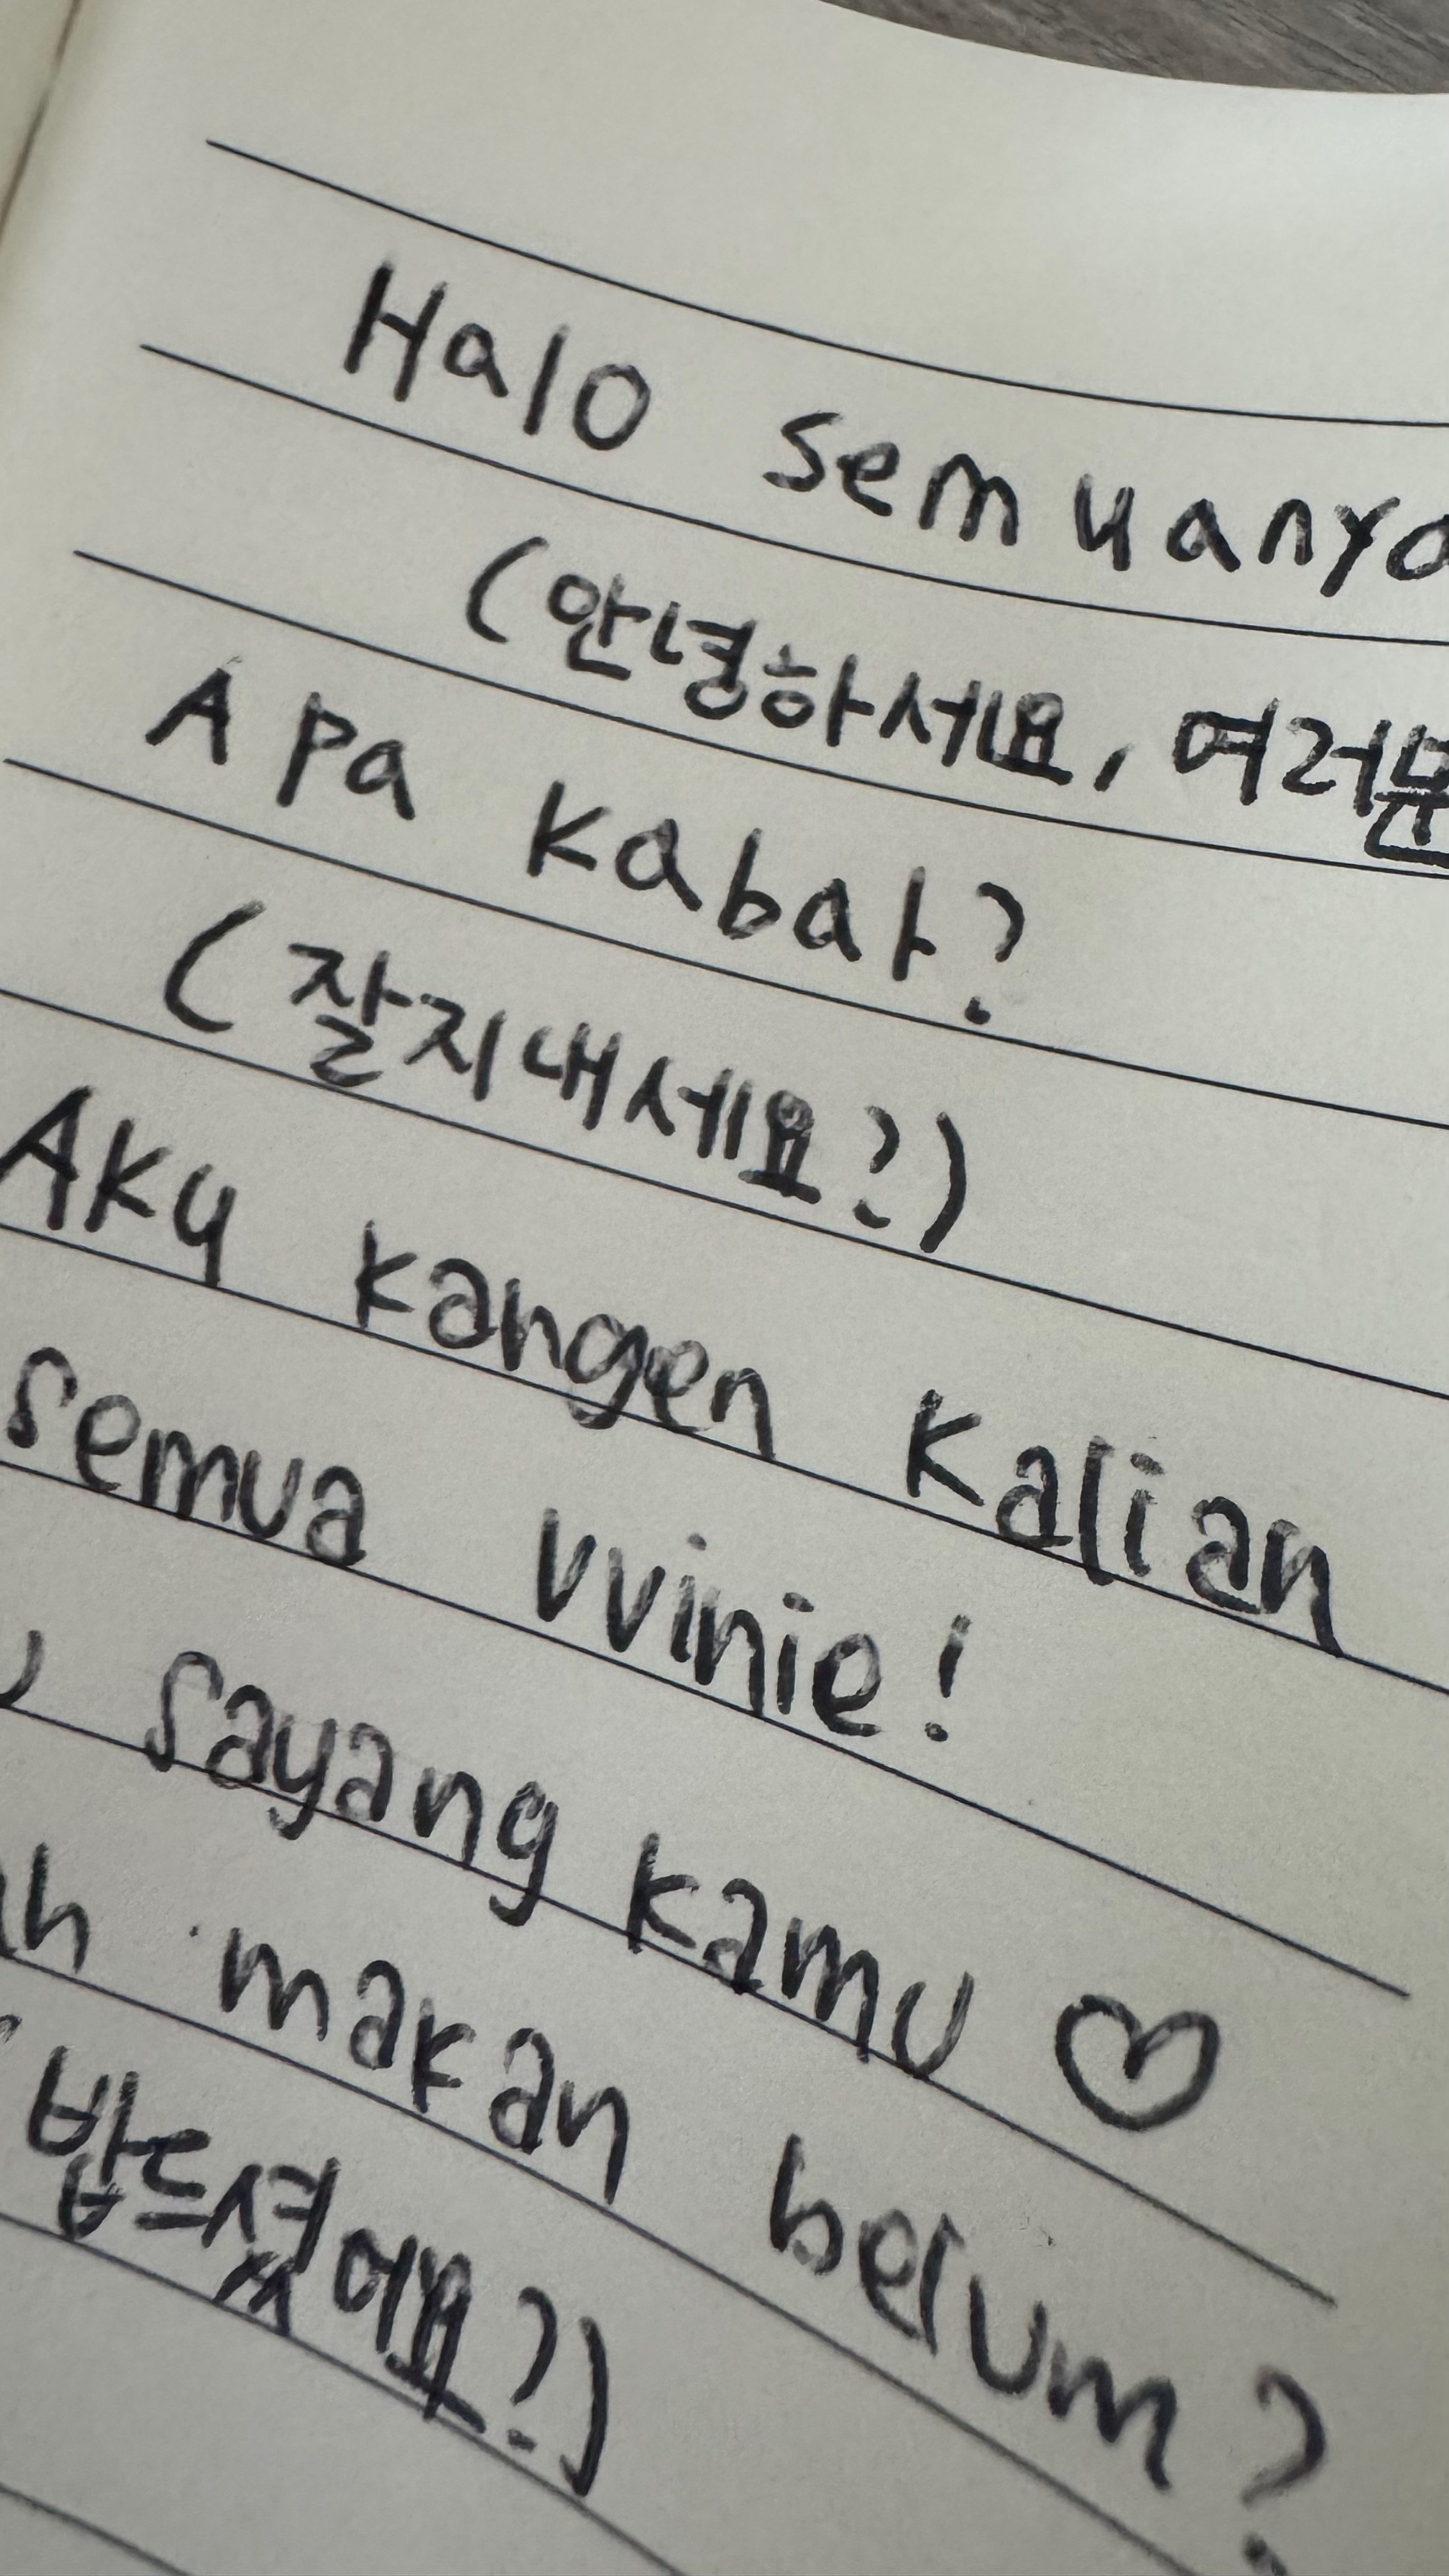 Halo semuanya
(안녕하세요, 여러분
Apa kabar?
(잘지내세요?)
Aku kangen kalian
semua vvinie!
sayang kamu ♡
makan belum?
밥드셨어요?)